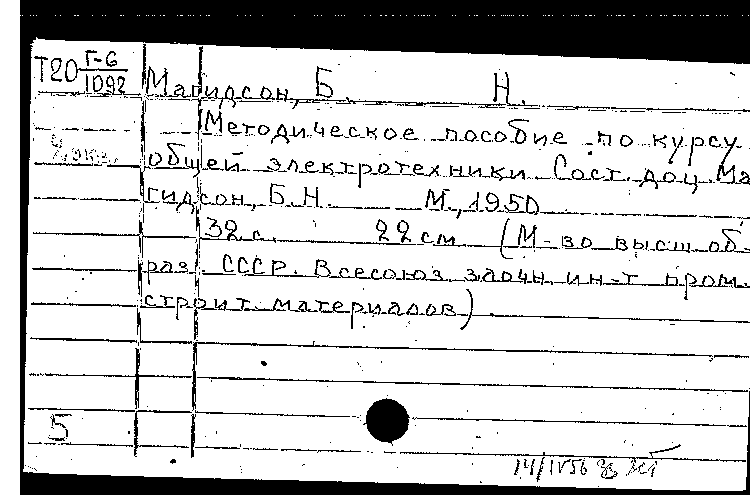 Т20 Г-6
1092
Магидсон, Б. Н.
Методическое пособие по курсу
общей электротехники Сост. доц. Ма
гидсон, Б.Н. М., 1950
32 с. 22 см (М-во высш. об-
раз. СССР. Всесоюз. заочн. ин-т пром.
строит. материалов).
5
14/IV56